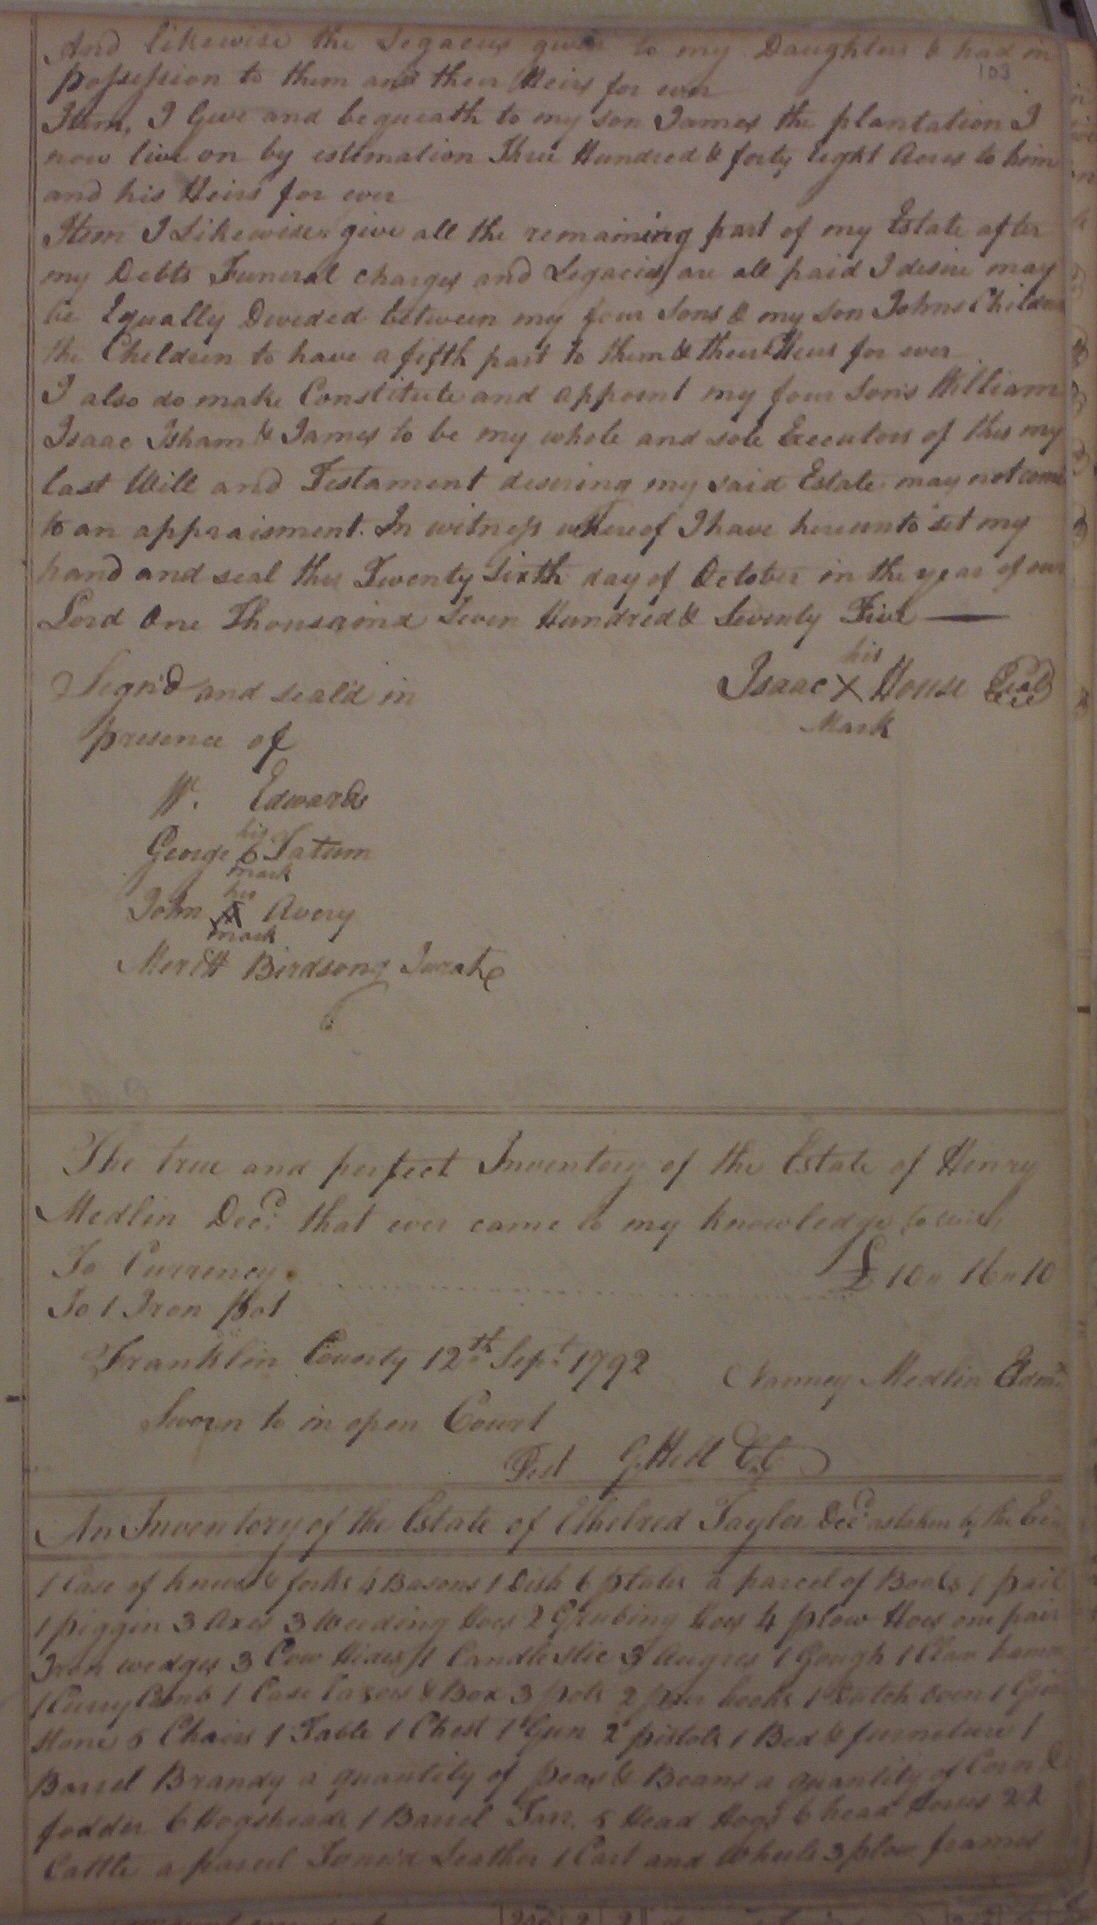 And likewise the Legacies given to my Daughters & had in
103
possession to them and their Heirs for ever
Item, I Give and bequeath to my son James the plantation I
now live on by estimation Three Hundred & forty eight Acres to him
and his Heirs for ever
Item I Likewise give all the remaining part of my Estate after
my Debts Funeral charges and Legacies are all paid I desire may
be Equally Devided between my four Sons & my son Johns Children
the Children to have a fifth part to them & their Heirs for ever
I also do make Constitute and appoint my four Sons William
Isaac Isham & James to be my whole and sole Executors of this my
last Will and Testament desiring my said Estate may not come
to an appraisment. In witness whereof I have hereunto set my
hand and seal this Twenty Sixth day of October in the year of our
Lord One Thousand Seven Hundred & Seventy Five
Signd and seald in
presence of
his
Isaac X House Seal
Mark
W. Edwards
his
George Tatum
mark
his
John A Avery
mark
Meritt Birdsong Jurat
The true and perfect Inventory of the Estate of Henry
Medlin Decd. that ever came to my knowledge to wit,
To Currency £10 " 16 " 10
To 1 Iron pot
Franklin County 12th Sept. 1792
Nanney Medlin Admx
Sworn to in open Court
Test G. Hill CC
An Inventory of the Estate of Ethelred Taylor Decd as taken by the
1 Case of knives & forks 4 Basons 1 Dish 6 plates a parcel of Books 1 pail
1 piggin 3 Axes 3 Weeding Hoes 2 Grubing Hoes 4 plow Hoes one pair
Iron wedges 3 Cow Hides 1 Candlestic 3 Augres 1 Gough 1 Claw hammer
1 Curry Comb 1 Case Razors & Box 3 pots 2 pair hooks 1 Dutch Oven 1 Grind
stone 8 Chairs 1 Table 1 Chest 1 Gun 2 pistols 1 Bed & furniture 1
Barrel Brandy a quantity of peas & Beans a quantity of Corn &
fodder 6 Hogsheads 1 Barrel Tarr 8 Head Hogs 6 head Horses 22
Cattle a parcel Tanned Leather 1 Cart and Wheels 3 plow frames